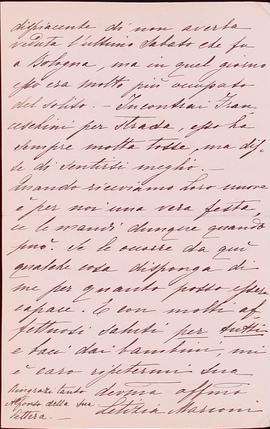 dispiacente di non averla
veduta l'ultimo Sabato che fu
a Bologna, ma in quel giorno
era molto più occupato
del solito. - Incontrai Fran
ceschini per strada, ha
sempre molta tosse, ma dis
se di sentirsi meglio. -
Quando riceviamo loro nuove
è per noi una vera festa
ce le mandi dunque quando
può. Se le occorre da qui
qualche cosa disponga di
me per quanto posso essere
capace. E con molti af
fettuosi saluti per tutti
e baci dai bambini, mi
è caro ripetermi sua
devma affma
Letizia Marconi
Ringrazi tanto
Alfonso della sua
lettera. -